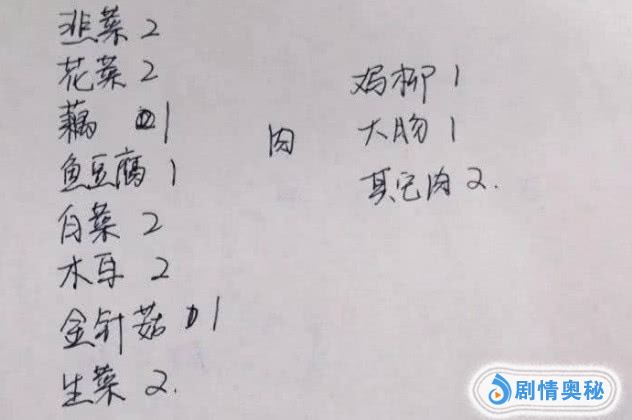 韭菜 2
花菜 2
藕 1
鱼豆腐 1
白菜 2
木耳 2
金针菇 1
生菜 2.
肉
鸡柳 1
大肠 1
其它肉 2.
剧情奥秘